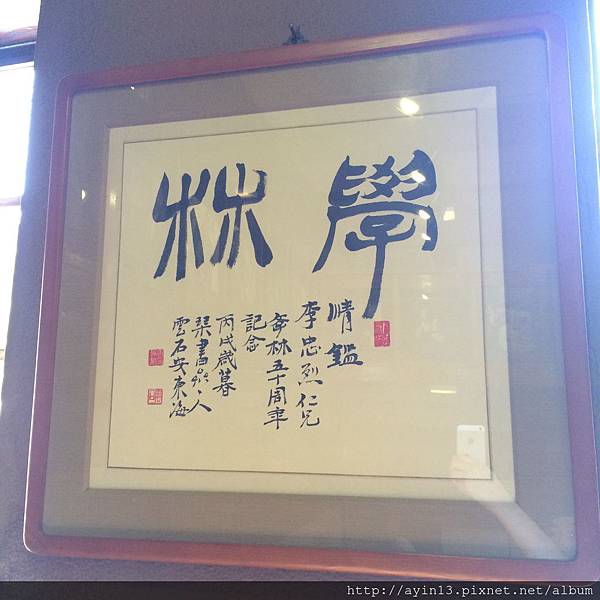 學林
情鑑
李忠烈仁兄
斈林五十周年
記念
丙戌歲暮
琴書人
雲石安東海
http://ayin13.pixnet.net/album